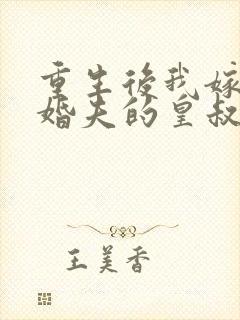 重生後我嫁
婚夫的皇叔
王美香